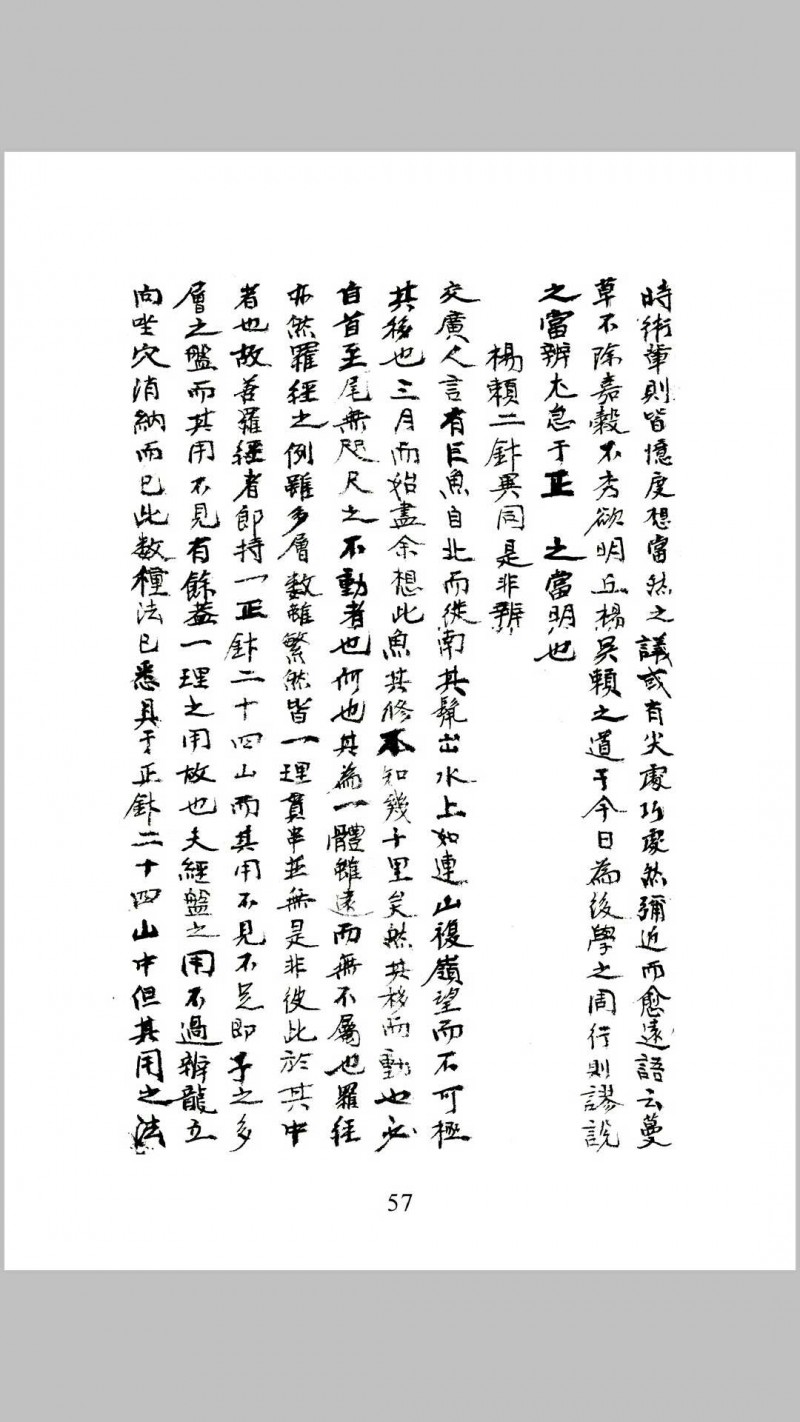 時術輩則皆憶度想當然之議或有尖處巧處然彌近而愈遠語云蔓
草不除嘉穀不秀欲明丘楊吳賴之道于今日為後學之周行則謬說
之當辨尤急于正 之當明也
楊賴二針異同是非辨
交廣人言有巨魚自北而徙南其鬣出水上如連山複嶺望而不可極
其移也三月而始盡余想此魚其修不知幾千里矣然其移而動也必
自首至尾無咫尺之不動者也何也其為一體雖遠而無不屬也羅經
亦然羅經之例雖多層數雖繁然皆一理貫串並無是非彼此於其中
者也故善羅經者即持一正針二十四山而其用不見不足即予之多
層之盤而其用不見有餘蓋一理之用故也夫經盤之用不過辨龍立
向坐穴消納而已此数種法已悉具于正針二十四山中但其用之法
57